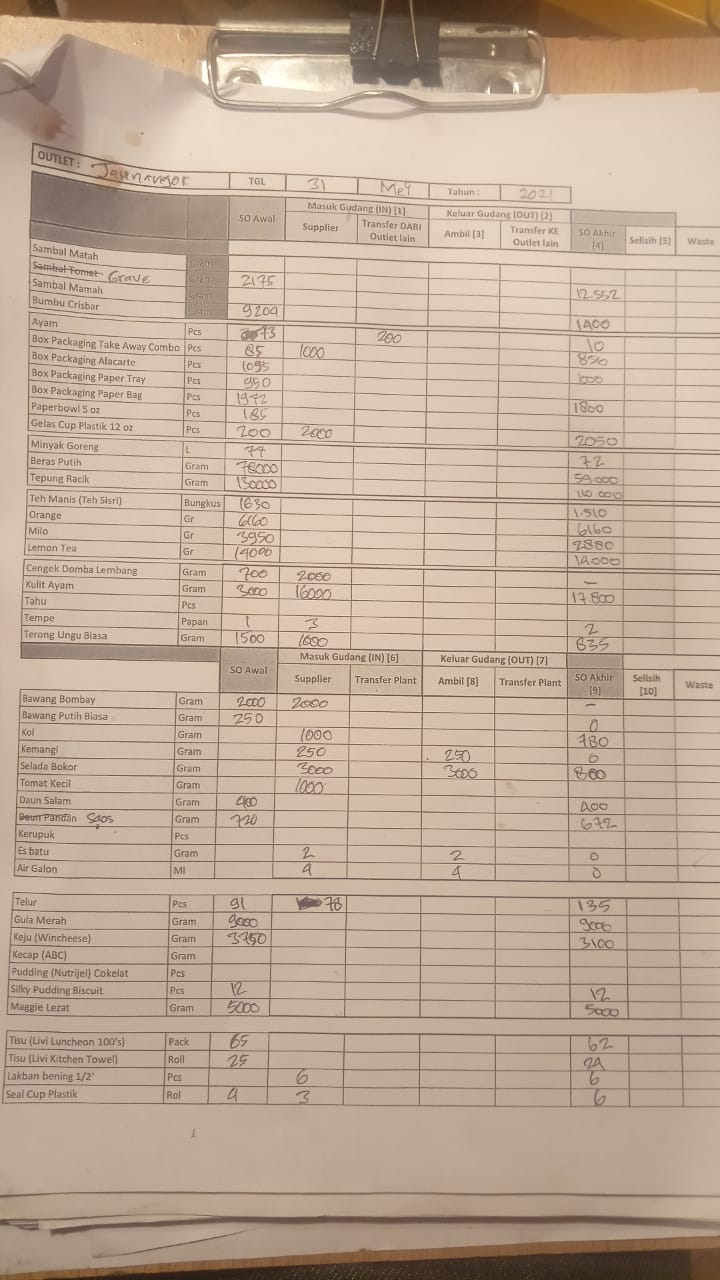 OUTLET : Jatinangor TGL 31 Mey Tahun : 2021
SO Awal Masuk Gudang (IN) [1] Keluar Gudang (OUT) [2] SO Akhir [4] Selisih [5] Waste
Supplier Transfer DARI Outlet lain Ambil [3] Transfer KE Outlet lain
Sambal Matah Gram
Sambal Tomat Grave Gram 2175 12.552
Sambal Mamah Gram
Bumbu Crisbar Gram 9204 1400
Ayam Pcs 73 200 10
Box Packaging Take Away Combo Pcs 85 1000 850
Box Packaging Alacarte Pcs 1095 600
Box Packaging Paper Tray Pcs 950
Box Packaging Paper Bag Pcs 1972 1800
Paperbowl 5 oz Pcs 185
Gelas Cup Plastik 12 oz Pcs 200 2000 2050
Minyak Goreng L 77 72
Beras Putih Gram 78000 59.000
Tepung Racik Gram 130000 110.000
Teh Manis (Teh Sisri) Bungkus 1630 1.510
Orange Gr 6160 6160
Milo Gr 3950 2880
Lemon Tea Gr 14000 14.000
Cengek Domba Lembang Gram 700 2000 -
Kulit Ayam Gram 3000 16000 17.800
Tahu Pcs
Tempe Papan 1 3 2
Terong Ungu Biasa Gram 1500 1600 835
SO Awal Masuk Gudang (IN) [6] Keluar Gudang (OUT) [7] SO Akhir [9] Selisih [10] Waste
Supplier Transfer Plant Ambil [8] Transfer Plant
Bawang Bombay Gram 2000 2000 -
Bawang Putih Biasa Gram 250 0
Kol Gram 1000 780
Kemangi Gram 250 250 0
Selada Bokor Gram 3000 3000 800
Tomat Kecil Gram 1000
Daun Salam Gram 400 400
Daun Pandan Saos Gram 720 672
Kerupuk Pcs
Es batu Gram 2 2 0
Air Galon Ml 4 4 0
Telur Pcs 91 78 135
Gula Merah Gram 9000 9000
Keju (Wincheese) Gram 3750 3100
Kecap (ABC) Gram
Pudding (Nutrijel) Cokelat Pcs
Silky Pudding Biscuit Pcs 12 12
Maggie Lezat Gram 5000 5000
Tisu (Livi Luncheon 100's) Pack 65 62
Tisu (Livi Kitchen Towel) Roll 25 24
Lakban bening 1/2' Pcs 6 6
Seal Cup Plastik Rol 4 3 6